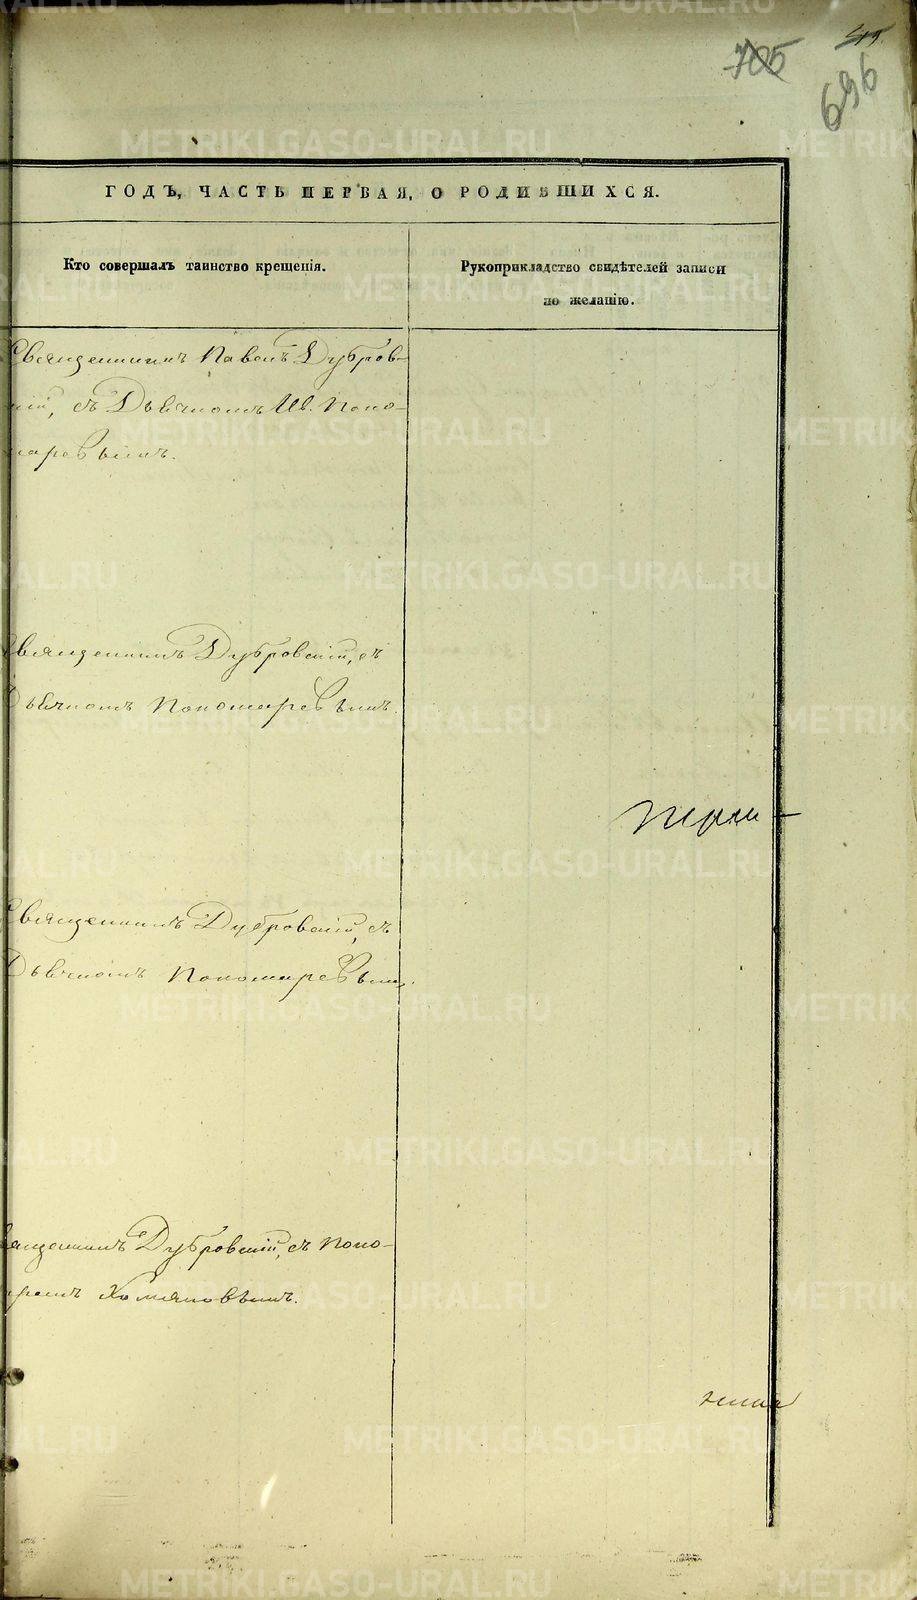 705
696
ГОДЪ, ЧАСТЬ ПЕРВАЯ, О РОДИВШИХСЯ.
Кто совершалъ таинство крещенія.
Рукоприкладство свидѣтелей записи
по желанію.
Священникъ Павелъ Дубров-
кій, съ Дьячкомъ Ив. Поно-
маревымъ.
Священникъ Дубровскій, съ
Дьячкомъ Пономаревымъ.
Священникъ Дубровскій, съ
Дьячкомъ Пономаревымъ.
вященникъ Дубровскій, съ Поно-
аремъ Хомяковымъ.
METRIKI.GASO-URAL.RU